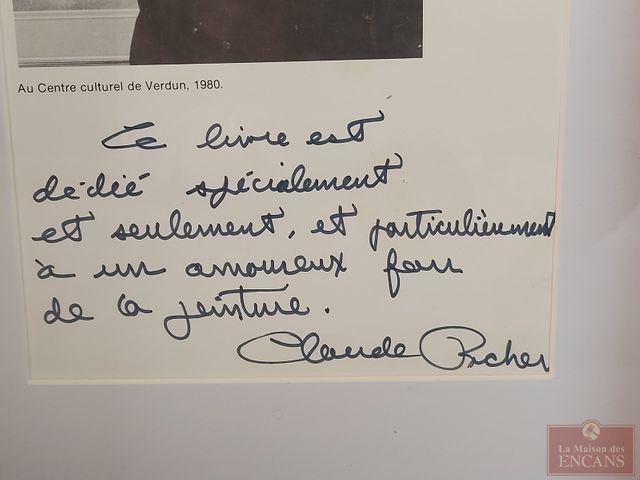 Au Centre culturel de Verdun, 1980.
Ce livre est
dédié spécialement
et seulement, et particulièrement
à un amoureux fou
de la peinture.
Claude Picher
La Maison des
ENCANS